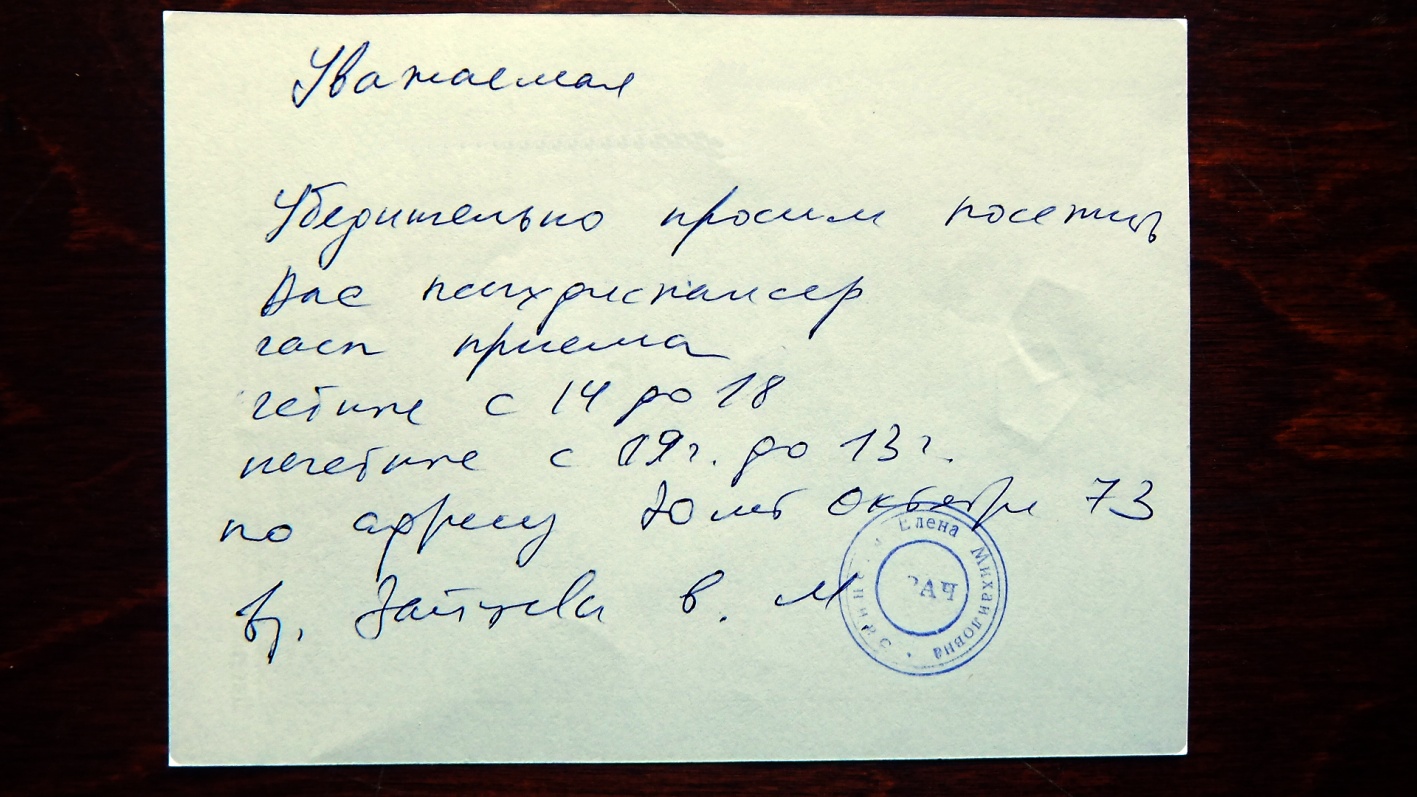 Уважаемая
Убедительно просим посетить
Вас психдиспансер
часы приема
четные с 14 до 18
нечетные с 9ч. до 13 ч.
по адресу 70 лет Октября 73
вр. Зайцева В. М
Елена Михайловна
ВРАЧ